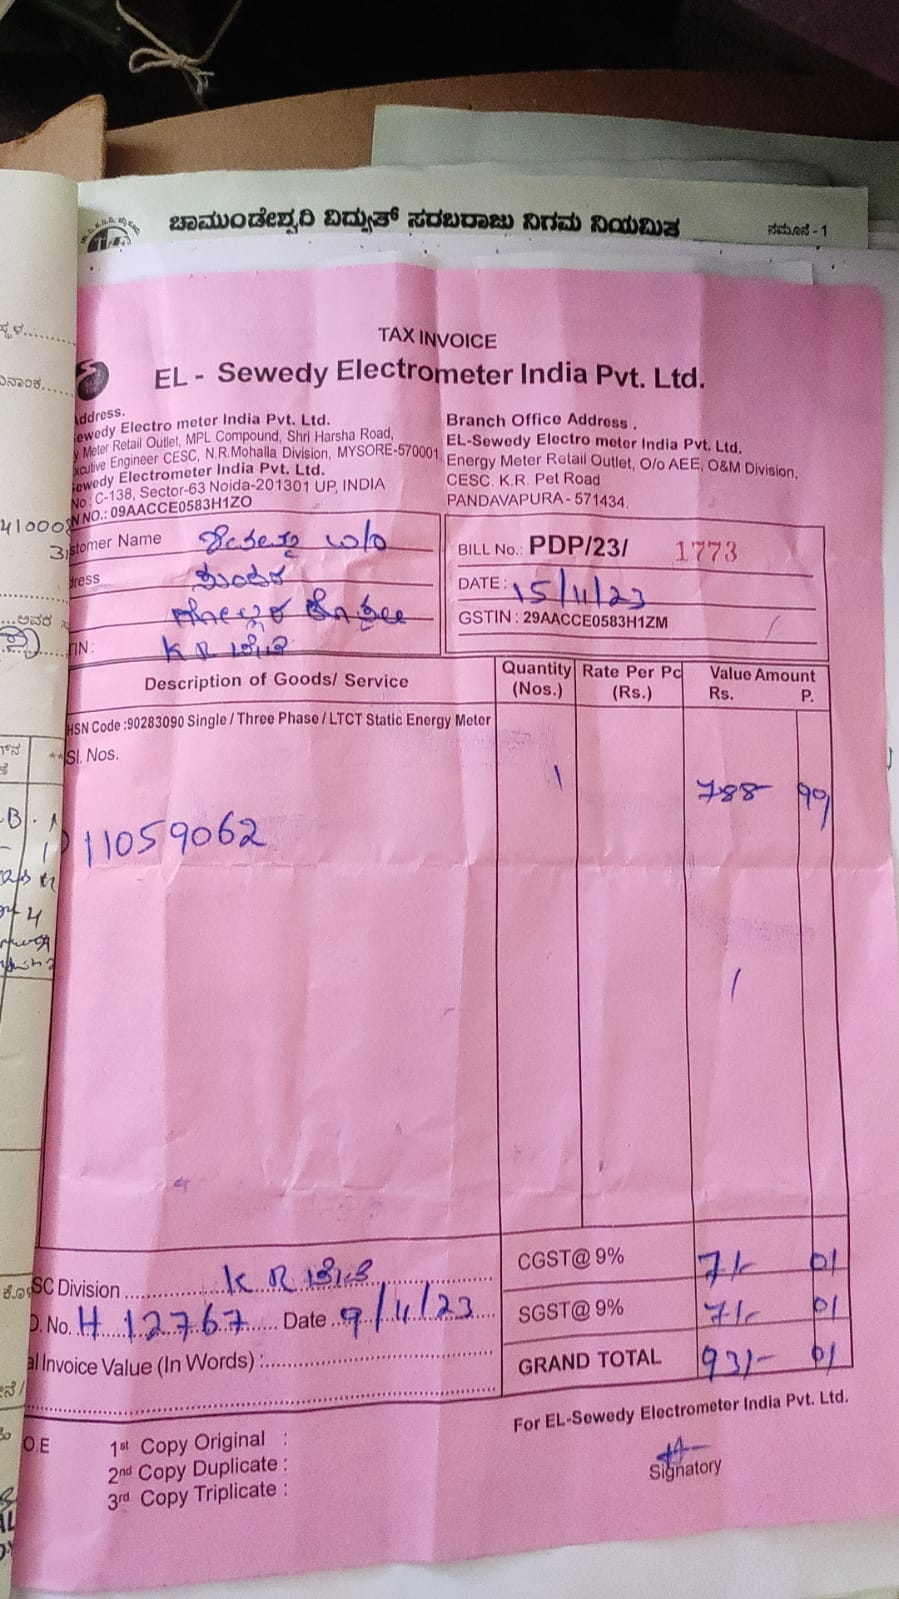 ಚಾಮುಂಡೇಶ್ವರಿ ವಿದ್ಯುತ್ ಸರಬರಾಜು ನಿಗಮ ನಿಯಮಿತ
ನಮೂನೆ - 1
TAX INVOICE
EL - Sewedy Electrometer India Pvt. Ltd.
ddress.
ewedy Electro meter India Pvt. Ltd.
y Meter Retail Outlet, MPL Compound, Shri Harsha Road,
xcutive Engineer CESC, N.R.Mohalla Division, MYSORE-570001
ewedy Electrometer India Pvt. Ltd.
No : C-138, Sector-63 Noida-201301 UP, INDIA
N NO.: 09AACCE0583H1ZO
Branch Office Address .
EL-Sewedy Electro meter India Pvt. Ltd.
Energy Meter Retail Outlet, O/o AEE, O&M Division,
CESC. K.R. Pet Road
PANDAVAPURA - 571434.
stomer Name
dress
TIN : K R ಪೇಟೆ
BILL No.: PDP/23/ 1773
DATE : 15/11/23
GSTIN : 29AACCE0583H1ZM
Description of Goods/ Service
Quantity (Nos.)
Rate Per Pc (Rs.)
Value Amount
Rs. P.
HSN Code :90283090 Single / Three Phase / LTCT Static Energy Meter
**Sl. Nos.
1 788 99
11059062
SC Division K R ಪೇಟೆ
CGST@ 9% 71- 01
O. No. H 12767 Date 9/11/23
SGST@ 9% 71- 01
al Invoice Value (In Words) :
GRAND TOTAL 931- 01
For EL-Sewedy Electrometer India Pvt. Ltd.
O.E
1st Copy Original :
2nd Copy Duplicate :
3rd Copy Triplicate :
Signatory